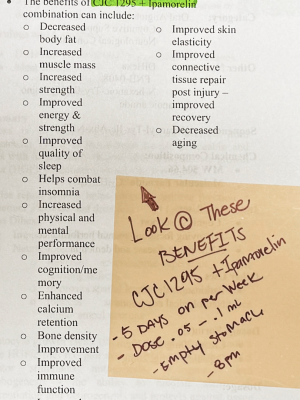 The benefits of CJC 1295 + Ipamorelin
combination can include:
o Decreased
body fat
o Increased
muscle mass
o Increased
strength
o Improved
energy &
strength
o Improved
quality of
sleep
o Helps combat
insomnia
o Increased
physical and
mental
performance
o Improved
cognition/me
mory
o Enhanced
calcium
retention
o Bone density
Improvement
o Improved
immune
function
o Improved skin
elasticity
o Improved
connective
tissue repair
post injury –
improved
recovery
o Decreased
aging
Look @ These
BENEFITS
CJC 1295 + Ipamorelin
- 5 DAYS on per Week
- DOSE .05 - .1 mL
- Empty stomach
- 8pm